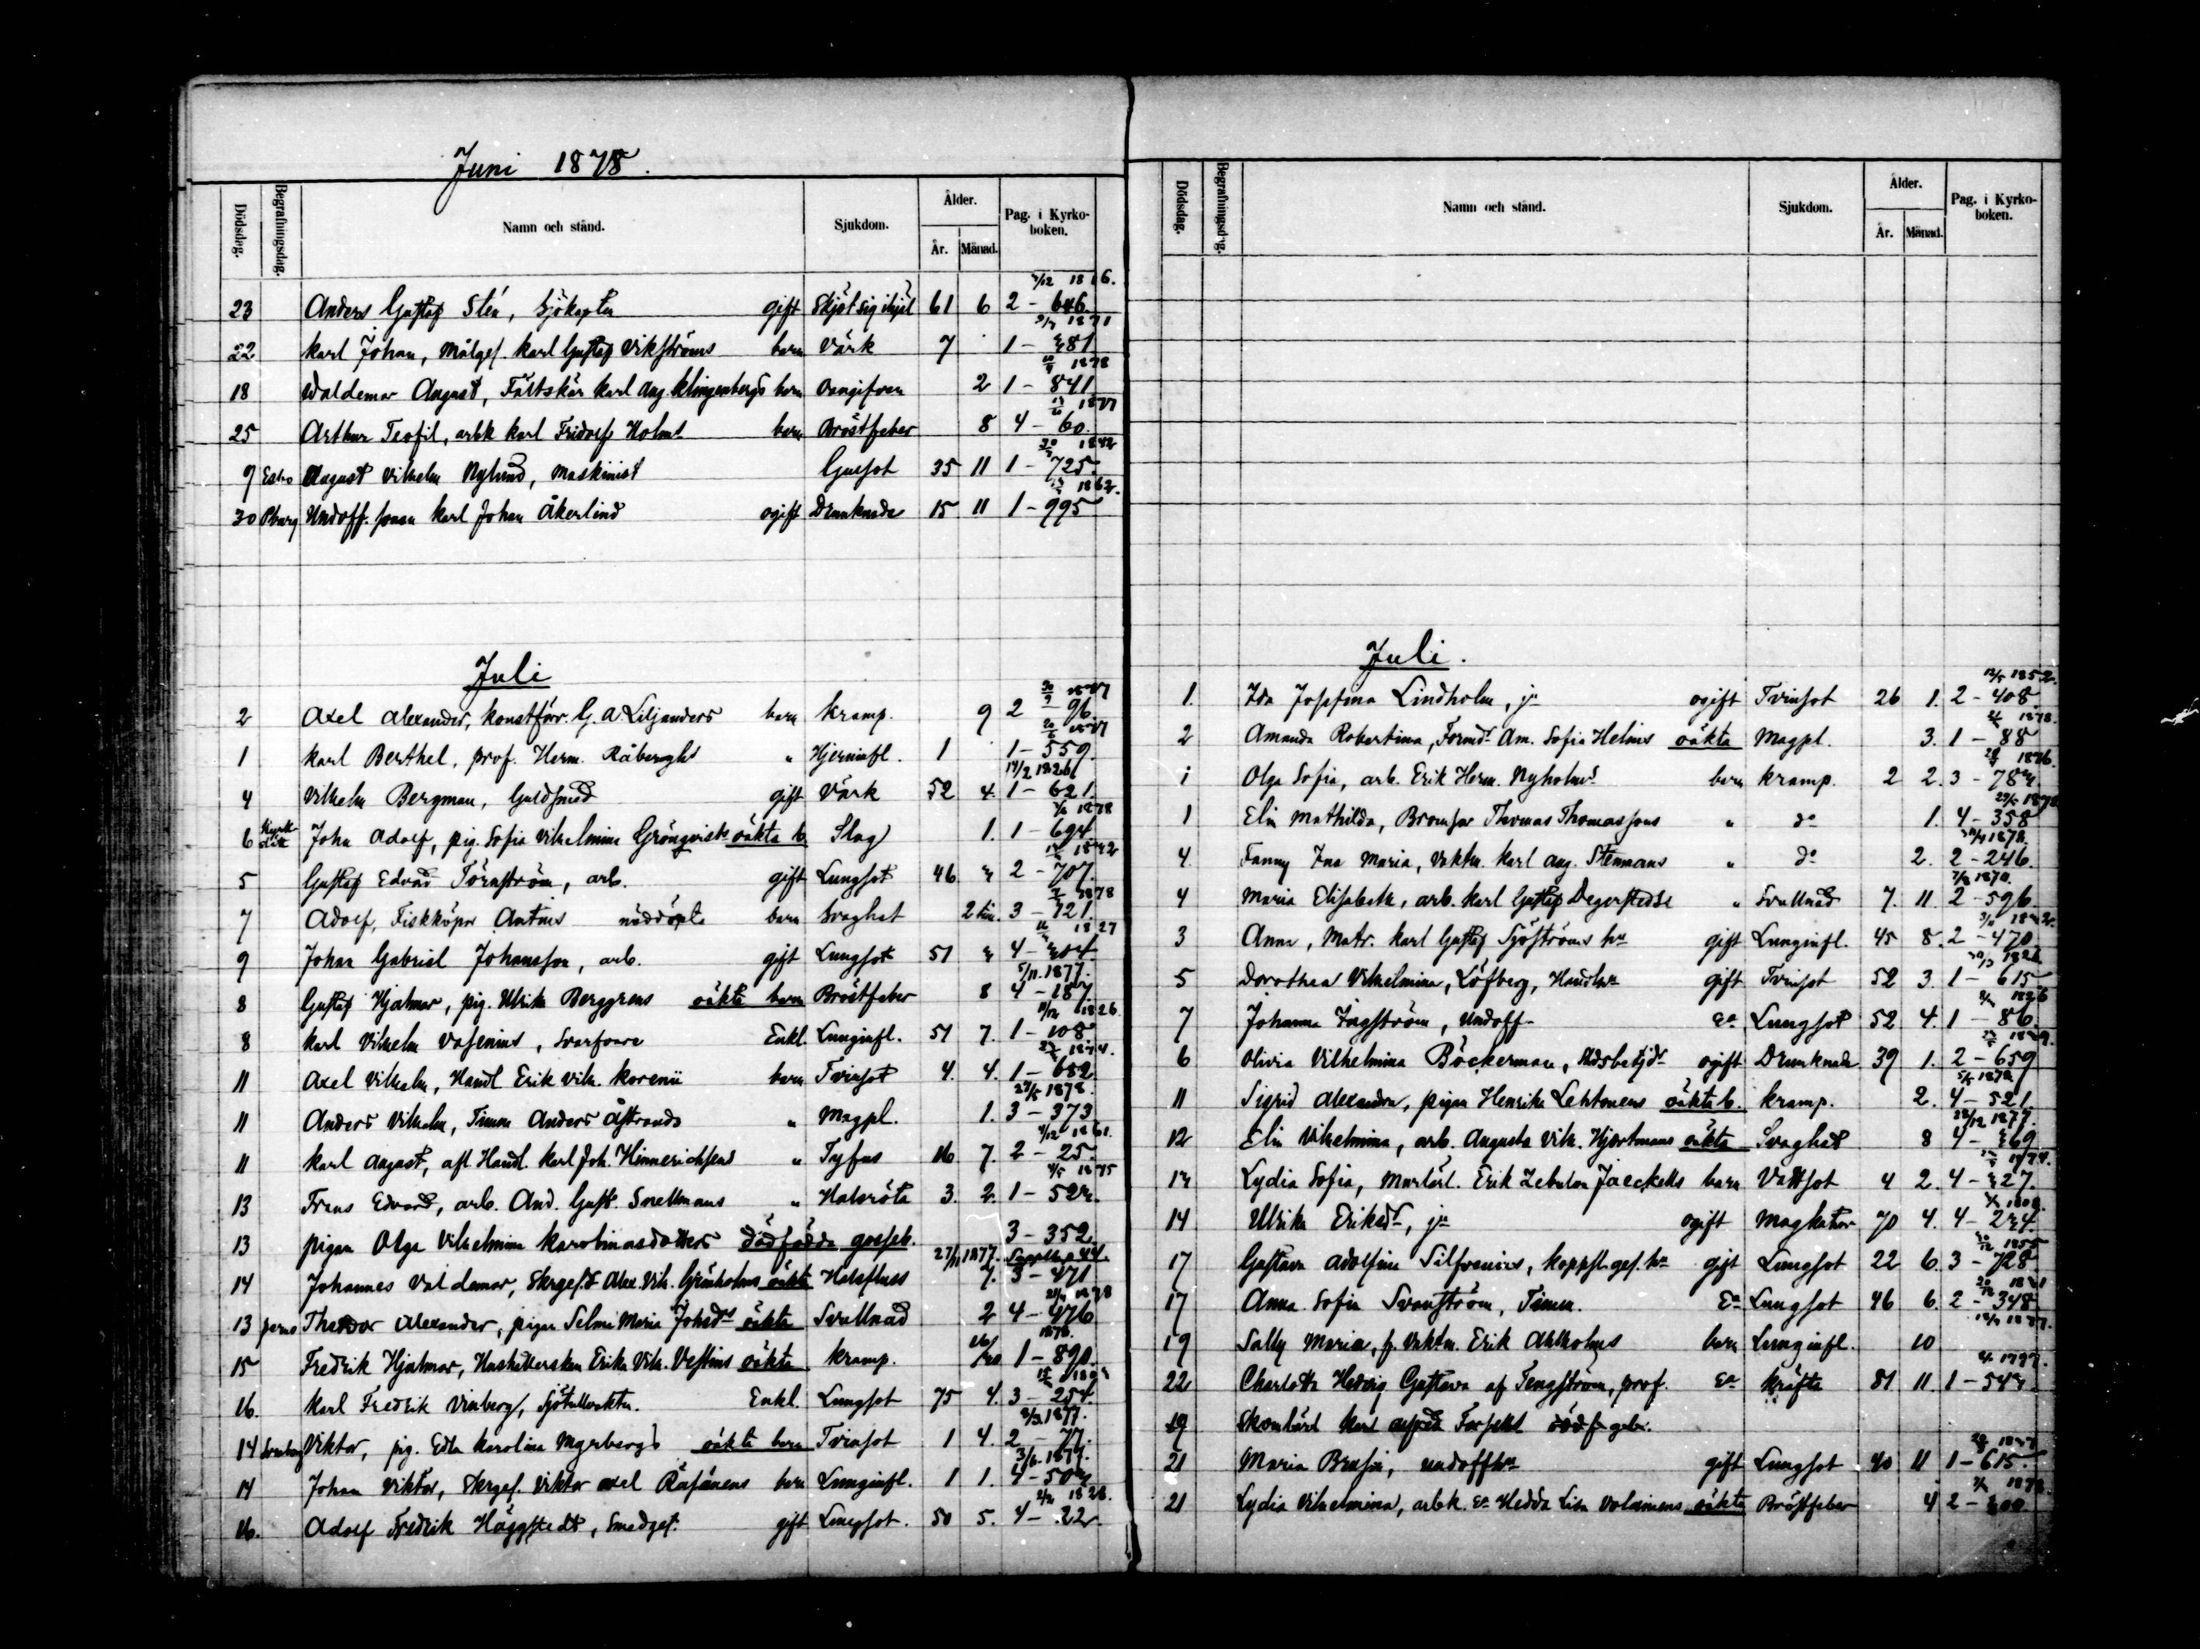 Juni 1878.
Dödsdag. Begrafningsdag. Namn och stånd. Sjukdom. Ålder. År. Månad. Pag. i Kyrkoboken.
1816.
23 Anders Gustaf Slén, Sjökapten gift Skjöt sig ihjel 61 6 2 - 646
1871
22 Karl Johan, Målges. Karl Gustaf Vikströms barn Värk 7 1 - 481
1878
18 Valdemar August, Fältskär Karl Aug. Klingenbergs barn 2 1 - 841
1877
25 Arthur Teofil, arbk Karl Fridolf Holms barn Bröstfeber 8 4 - 60.
1842
9 August Vilhelm Nylund, Maskinist Gulsot 35 11 1 - 725.
1862.
30 Undoff. sonen Karl Johan Åkerlund ogift Drunknade 15 11 1 - 995
Juli
1877
2 Axel Alexander, Konstförv. G. A. Liljanders barn Kramp. 9 2 96
1877
1 Karl Berthel, prof. Herm. Råberghs " Hjerninfl. 1 1 - 559.
14/2 1826
4 Vilhelm Bergman, Guldsmed gift Värk 52 4. 1 - 621.
1878
6 John Adolf, pig. Sofia Vilhelmina Grönqvists oäkta b. Slag 1. 1 - 694.
5 Gustaf Edvard Törnström, arb. gift Lungsot 46 2 - 707.
1878
7 Adolf, Fiskköpar Antins nöddöpta barn Svaghet 2 tim. 3 - 721.
1827
9 Johan Gabriel Johansson, arb. gift Lungsot 51 4 - 404
5/11. 1877.
8 Gustaf Hjalmar, pig. Ulrika Berggrens oäkta barn Bröstfeber 8 4 - 187
1826.
8 Karl Vilhelm Vasenius, Svarfvare Enkl. Lunginfl. 51 7. 1 - 108
1874.
11 Axel Vilhelm, Handl Erik Vilh. Korenii barn Tvinsot 4. 4. 1 - 682
27/5 1878.
11 Anders Vilhelm, Timm Anders Åstrands " Magpl. 1. 3 - 373
1861.
11 Karl August, afl. Handl. Karl Joh. Hinnerichsens " Tyfus 16 7. 2 - 25.
1875
13 Frans Edvard, arb. And. Gust. Snellmans " Halsröta 3. 2. 1 - 524.
13 pigan Olga Vilhelmina Karolinasdotters dödfödda gosseb. 3 - 352.
27/11 1877.
14 Johannes Valdemar, Skrges. d. Alex. Vilh. Grönholms oäkta Halsfluss 7. 3 - 471
1878
13 Theodor Alexander, pigan Selma Maria Johsds oäkta Svullnad 2 4 - 476
1878.
15 Fredrik Hjalmar, Hushållerskan Erika Vilh. Vestins oäkta Kramp. 1 - 890.
16. Karl Fredrik Vinberg, Sjötullvaktm. Enkl. Lungsot 75 4. 3 - 254.
1877.
14 Viktor, pig. Edla Karolina Myrbergs oäkta barn Tvinsot 1 4. 2 - 77.
1877.
14 Johan Viktor, Skrges. Viktor Axel Räsänens barn Lunginfl. 1 1. 4 - 504
1828.
16. Adolf Fredrik Häggstedt, Smedges. gift Lungsot. 50 5. 4 - 22.
Dödsdag. Begrafningsdag. Namn och stånd. Sjukdom. Ålder. År. Månad. Pag. i Kyrkoboken.
Juli.
1852.
1. Ida Josefina Lindholm, ogift Tvinsot 26 1. 2 - 408.
1878.
2 Amanda Robertina, Am. Sofia Helins oäkta Magpl. 3. 1 - 88
1876.
1 Olga Sofia, arb. Erik Herm. Nyholms barn Kramp. 2 2. 3 - 784
29/5 1878
1 Elin Mathilda, Bromsar Thomas Thomassons " do 1. 4 - 358
1878.
4. Fanny Ina Maria, Vaktm. Karl Aug. Stenmans " do 2. 2 - 246.
7/8 1870.
4 Maria Elisabeth, arb. Karl Gustaf Degerstedts " Svullnad 7. 11. 2 - 596
3 Anna, Matr. Karl Gustaf Sjöströms hu gift Lunginfl. 45 8. 2 - 470
1826
5 Dorothea Vilhelmina Löfberg, gift Tvinsot 52 3. 1 - 615
1826
7 Johanna Ingström, Undoff. Ea Lungsot 52 4. 1 - 86.
6 Olivia Vilhelmina Böckerman, ogift Drunknade 39 1. 2 - 659
5/5 1878
11 Sigrid Alexandra, pigan Henrika Lehtonens oäkta b. Kramp. 2. 4 - 521.
28/12 1877.
12 Elin Vilhelmina, arb. Augusta Vilh. Hjertmans oäkta Svaghet 8 4 - 469
1874.
Lydia Sofia, Erik Zebulon Jaeckells barn Vattsot 4 2. 4 - 427.
1808.
14 Ulrika Eriksdr, ogift Magkatar 70 4. 4 - 234
1855
17 Gustava Adolfina Silfvenius, kopparsl. ges. hu gift Lungsot 22 6. 3 - 728.
17 Anna Sofia Svanström, Timm. Ea Lungsot 46 6. 2 - 348
1877.
19 Sally Maria, f. Vaktm. Erik Ahlholms barn Lunginfl. 10
1797.
22 Charlotta Hedvig Gustava af Tengström, prof. Ea Kräfta 81 11. 1 - 544.
19 Karl Alfred Forsells dödf
21 Maria Brusin, undoff hu gift Lungsot 40 11 1 - 615
1878.
21 Lydia Vilhelmina, arbk. Ea Hedda Lisa Volainens oäkta Bröstfeber 4 2 - 408